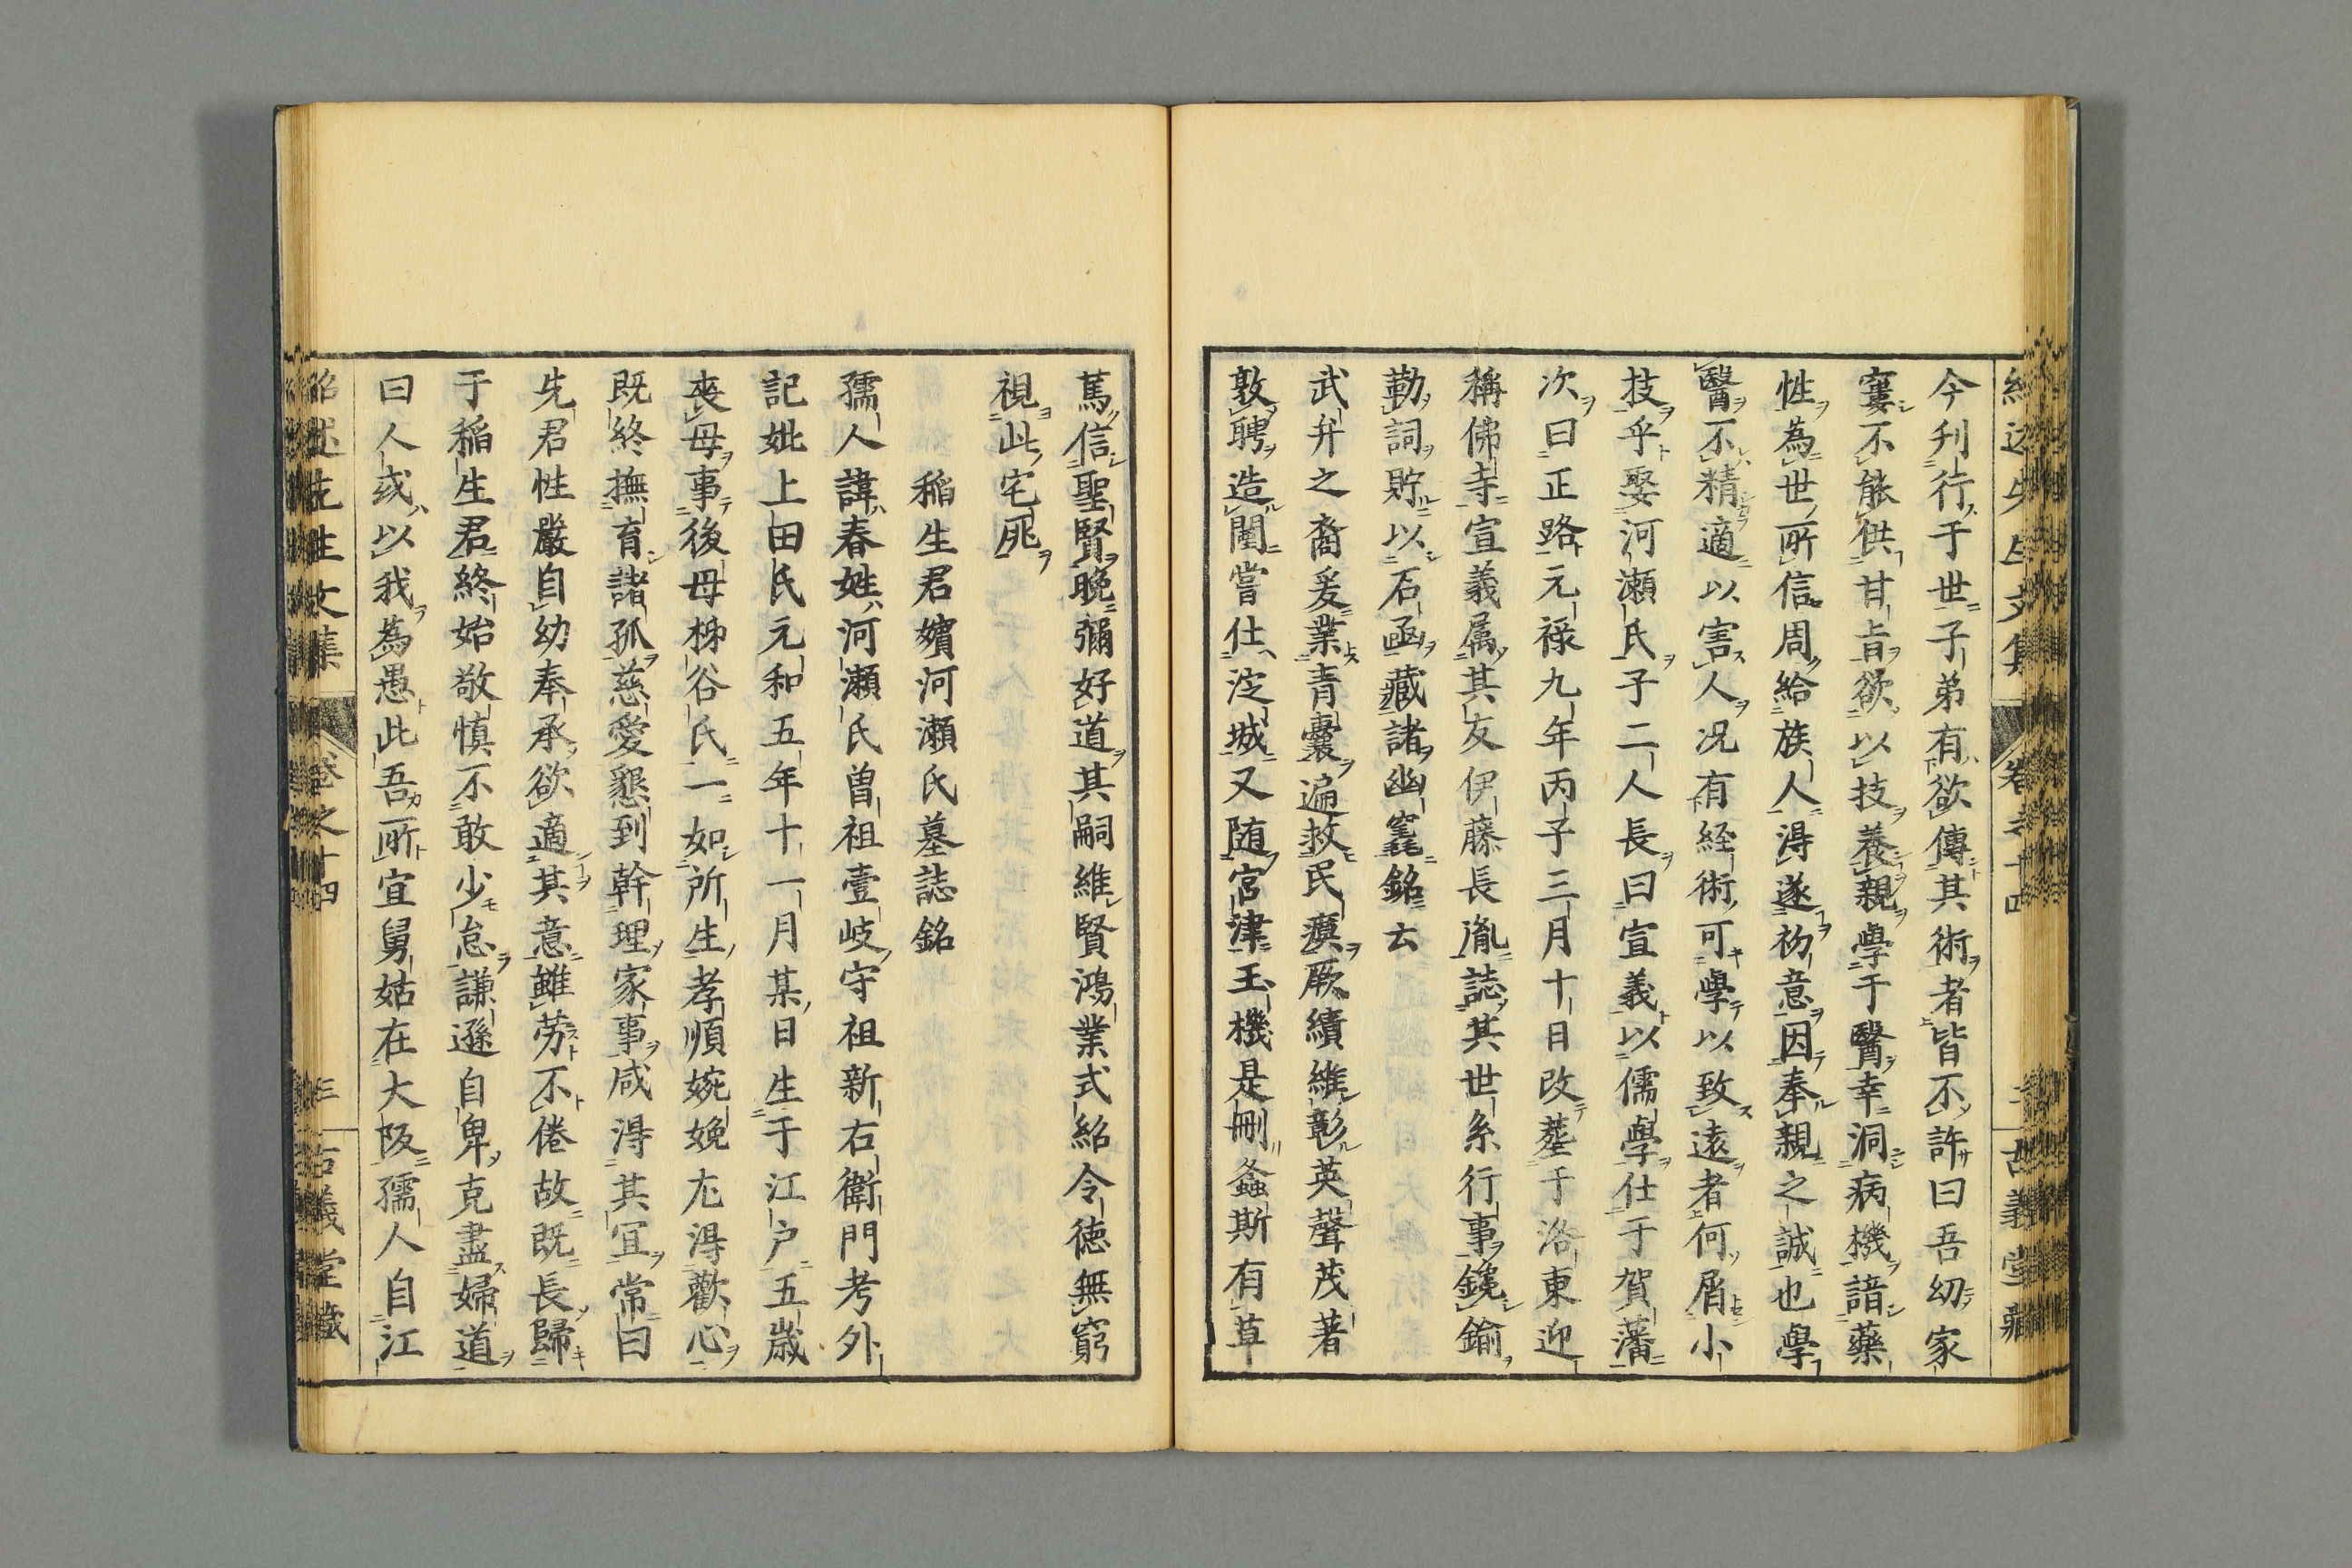 今刋行于世子弟有欲傳其術者皆不許曰吾幼家
窶不能供甘旨欲以技養親學于醫幸洞病機諳藥
性為世所信周給族人得遂初意因奉親之誠也學
醫不精適以害人况有経術可學以致遠者何屑小
技乎娶河瀬氏子二人長曰宣義以儒學仕于賀藩
次曰正路元禄九年丙子三月十日改葬于洛東迎
稱佛寺宣義属其友伊藤長胤誌其世系行事鑱鍮
勒詞貯以石凾藏諸幽窀銘云
武弁之裔爰業青囊遍救民瘼厥績維彰英聲茂著
敦聘造闉嘗仕淀城又随宮津玉機是刪螽斯有草
篤信聖賢晩彌好道其嗣維賢鴻業式紹令徳無窮
視此宅兆
稲生君嬪河瀬氏墓誌銘
孺人諱春姓河瀬氏曽祖壹岐守祖新右衛門考外
記妣上田氏元和五年十一月某日生于江户五歳
喪母事後母梯谷氏一如所生孝順婉娩尤得歡心
既終撫育諸孤慈愛懇到幹理家事咸得其宜常曰
先君性嚴自幼奉承欲適其意雖労不倦故既長歸
于稲生君終始敬慎不敢少怠謙遜自卑克盡婦道
曰人或以我為愚此吾所宜舅姑在大阪孺人自江
紹述先生文集 卷之十四 三 古義堂藏